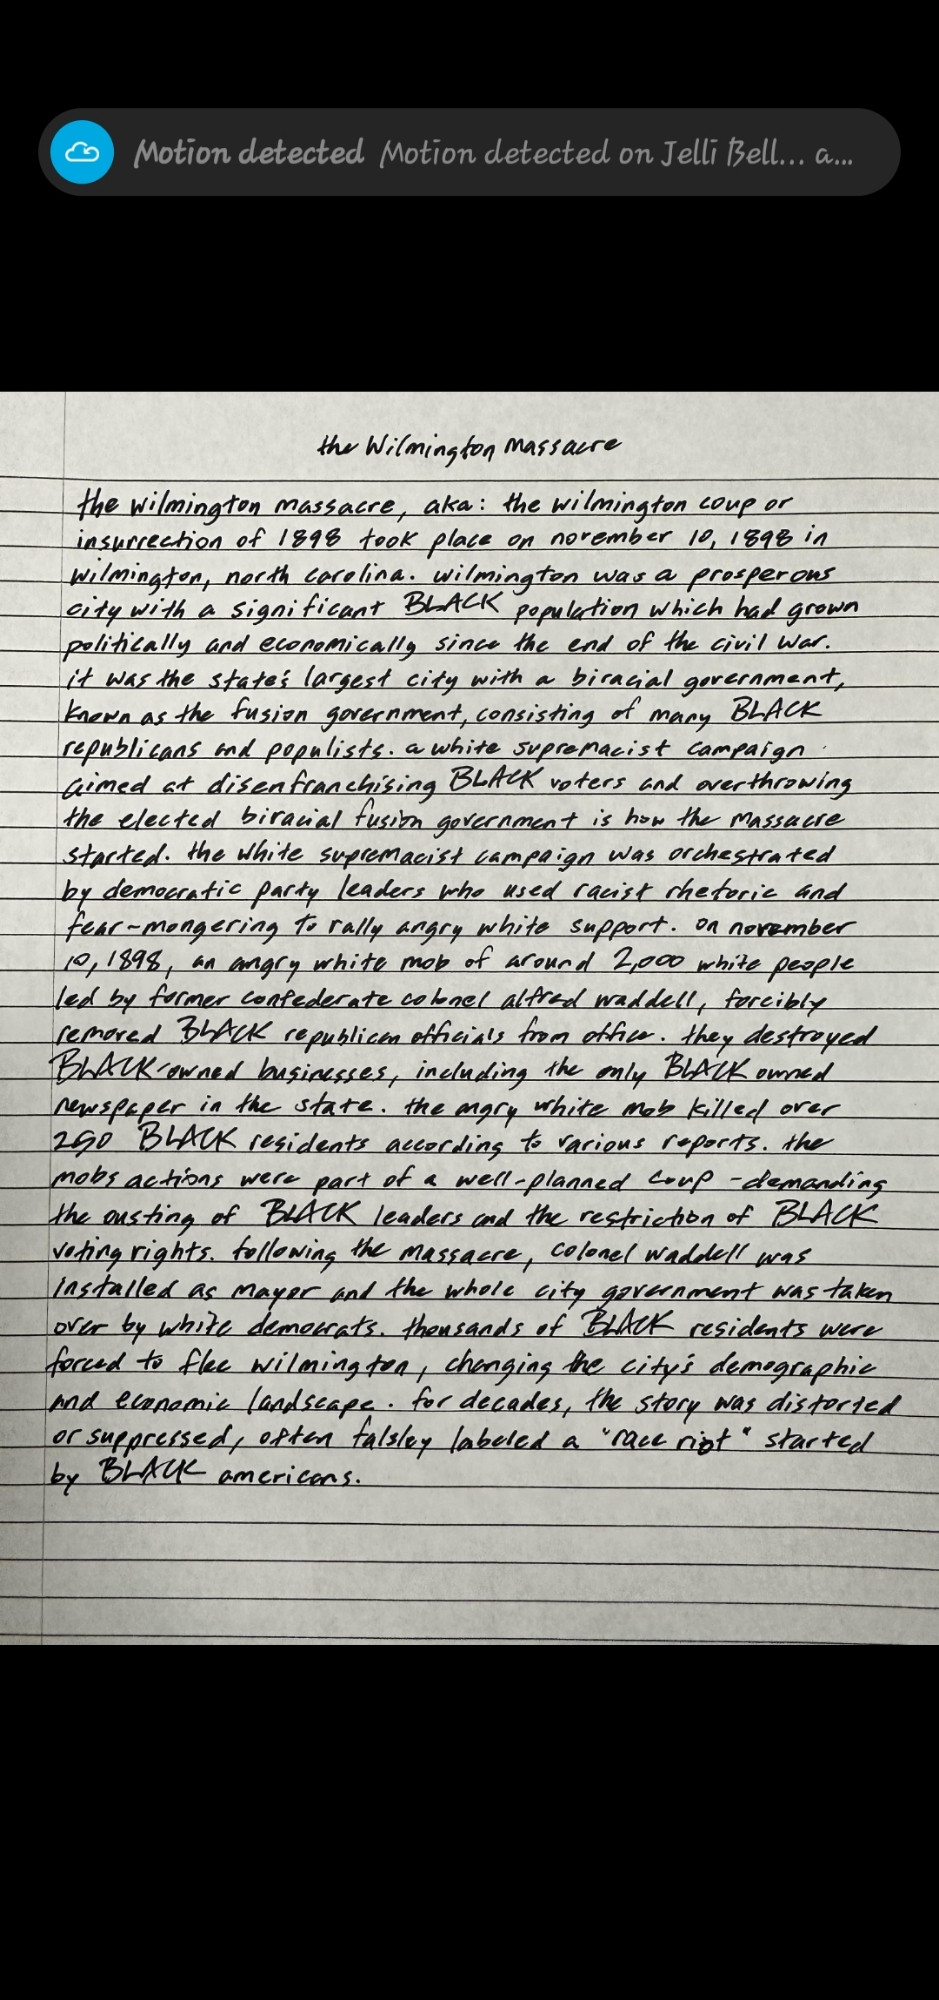 Motion detected Motion detected on Jelli Bell... a...
the Wilmington Massacre
the wilmington massacre, aka: the wilmington coup or
insurrection of 1898 took place on november 10, 1898 in
wilmington, north carolina. wilmington was a prosperous
city with a significant BLACK population which had grown
politically and economically since the end of the civil war.
it was the state's largest city with a biracial government,
known as the fusion government, consisting of many BLACK
republicans and populists. a white supremacist campaign
aimed at disenfranchising BLACK voters and overthrowing
the elected biracial fusion government is how the massacre
started. the white supremacist campaign was orchestrated
by democratic party leaders who used racist rhetoric and
fear-mongering to rally angry white support. on november
10, 1898, an angry white mob of around 2,000 white people
led by former confederate colonel alfred waddell, forcibly
removed BLACK republican officials from office. they destroyed
BLACK-owned businesses, including the only BLACK owned
newspaper in the state. the angry white mob killed over
250 BLACK residents according to various reports. the
mobs actions were part of a well-planned coup -demanding
the ousting of BLACK leaders and the restriction of BLACK
voting rights. following the massacre, colonel waddell was
installed as mayor and the whole city government was taken
over by white democrats. thousands of BLACK residents were
forced to flee wilmington, changing the city's demographic
and economic landscape. for decades, the story was distorted
or suppressed, often falsley labeled a "race riot" started
by BLACK americans.